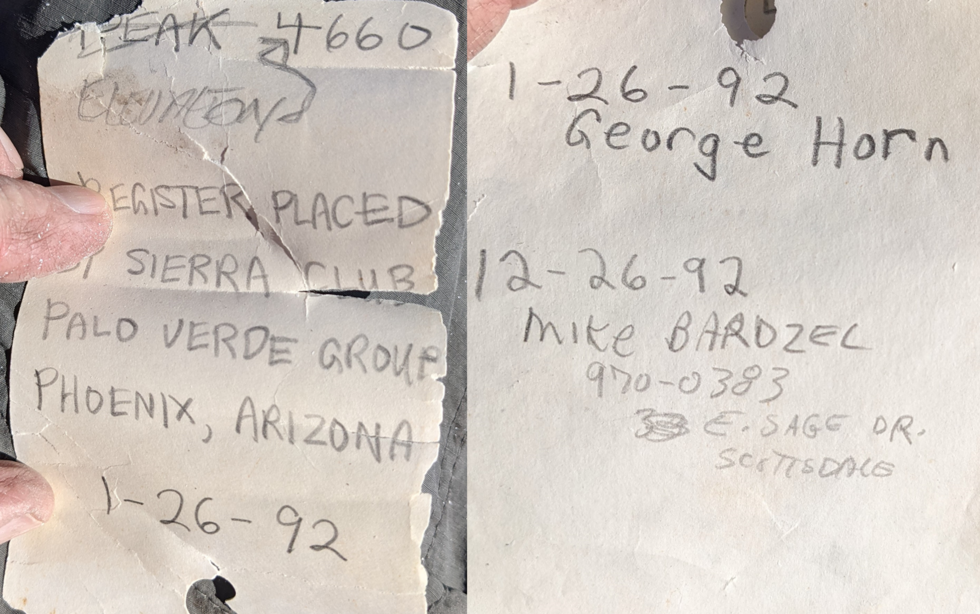 PEAK 4660
ELEVATION
REGISTER PLACED
BY SIERRA CLUB
PALO VERDE GROUP
PHOENIX, ARIZONA
1-26-92
1-26-92
George Horn
12-26-92
Mike BARDZEL
970-0383
E. SAGE DR.
SCOTTSDALE